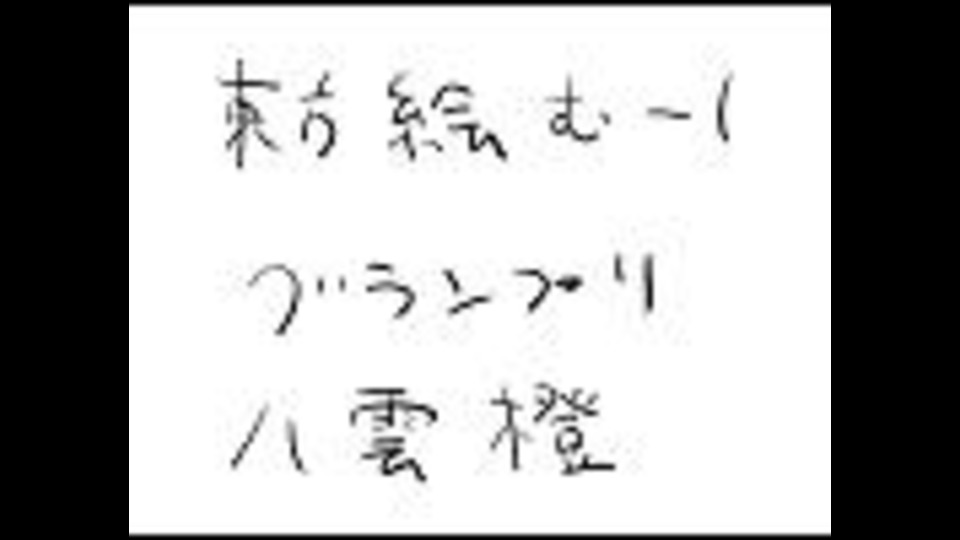 東方 絵 むー
グランプリ
八雲 橙